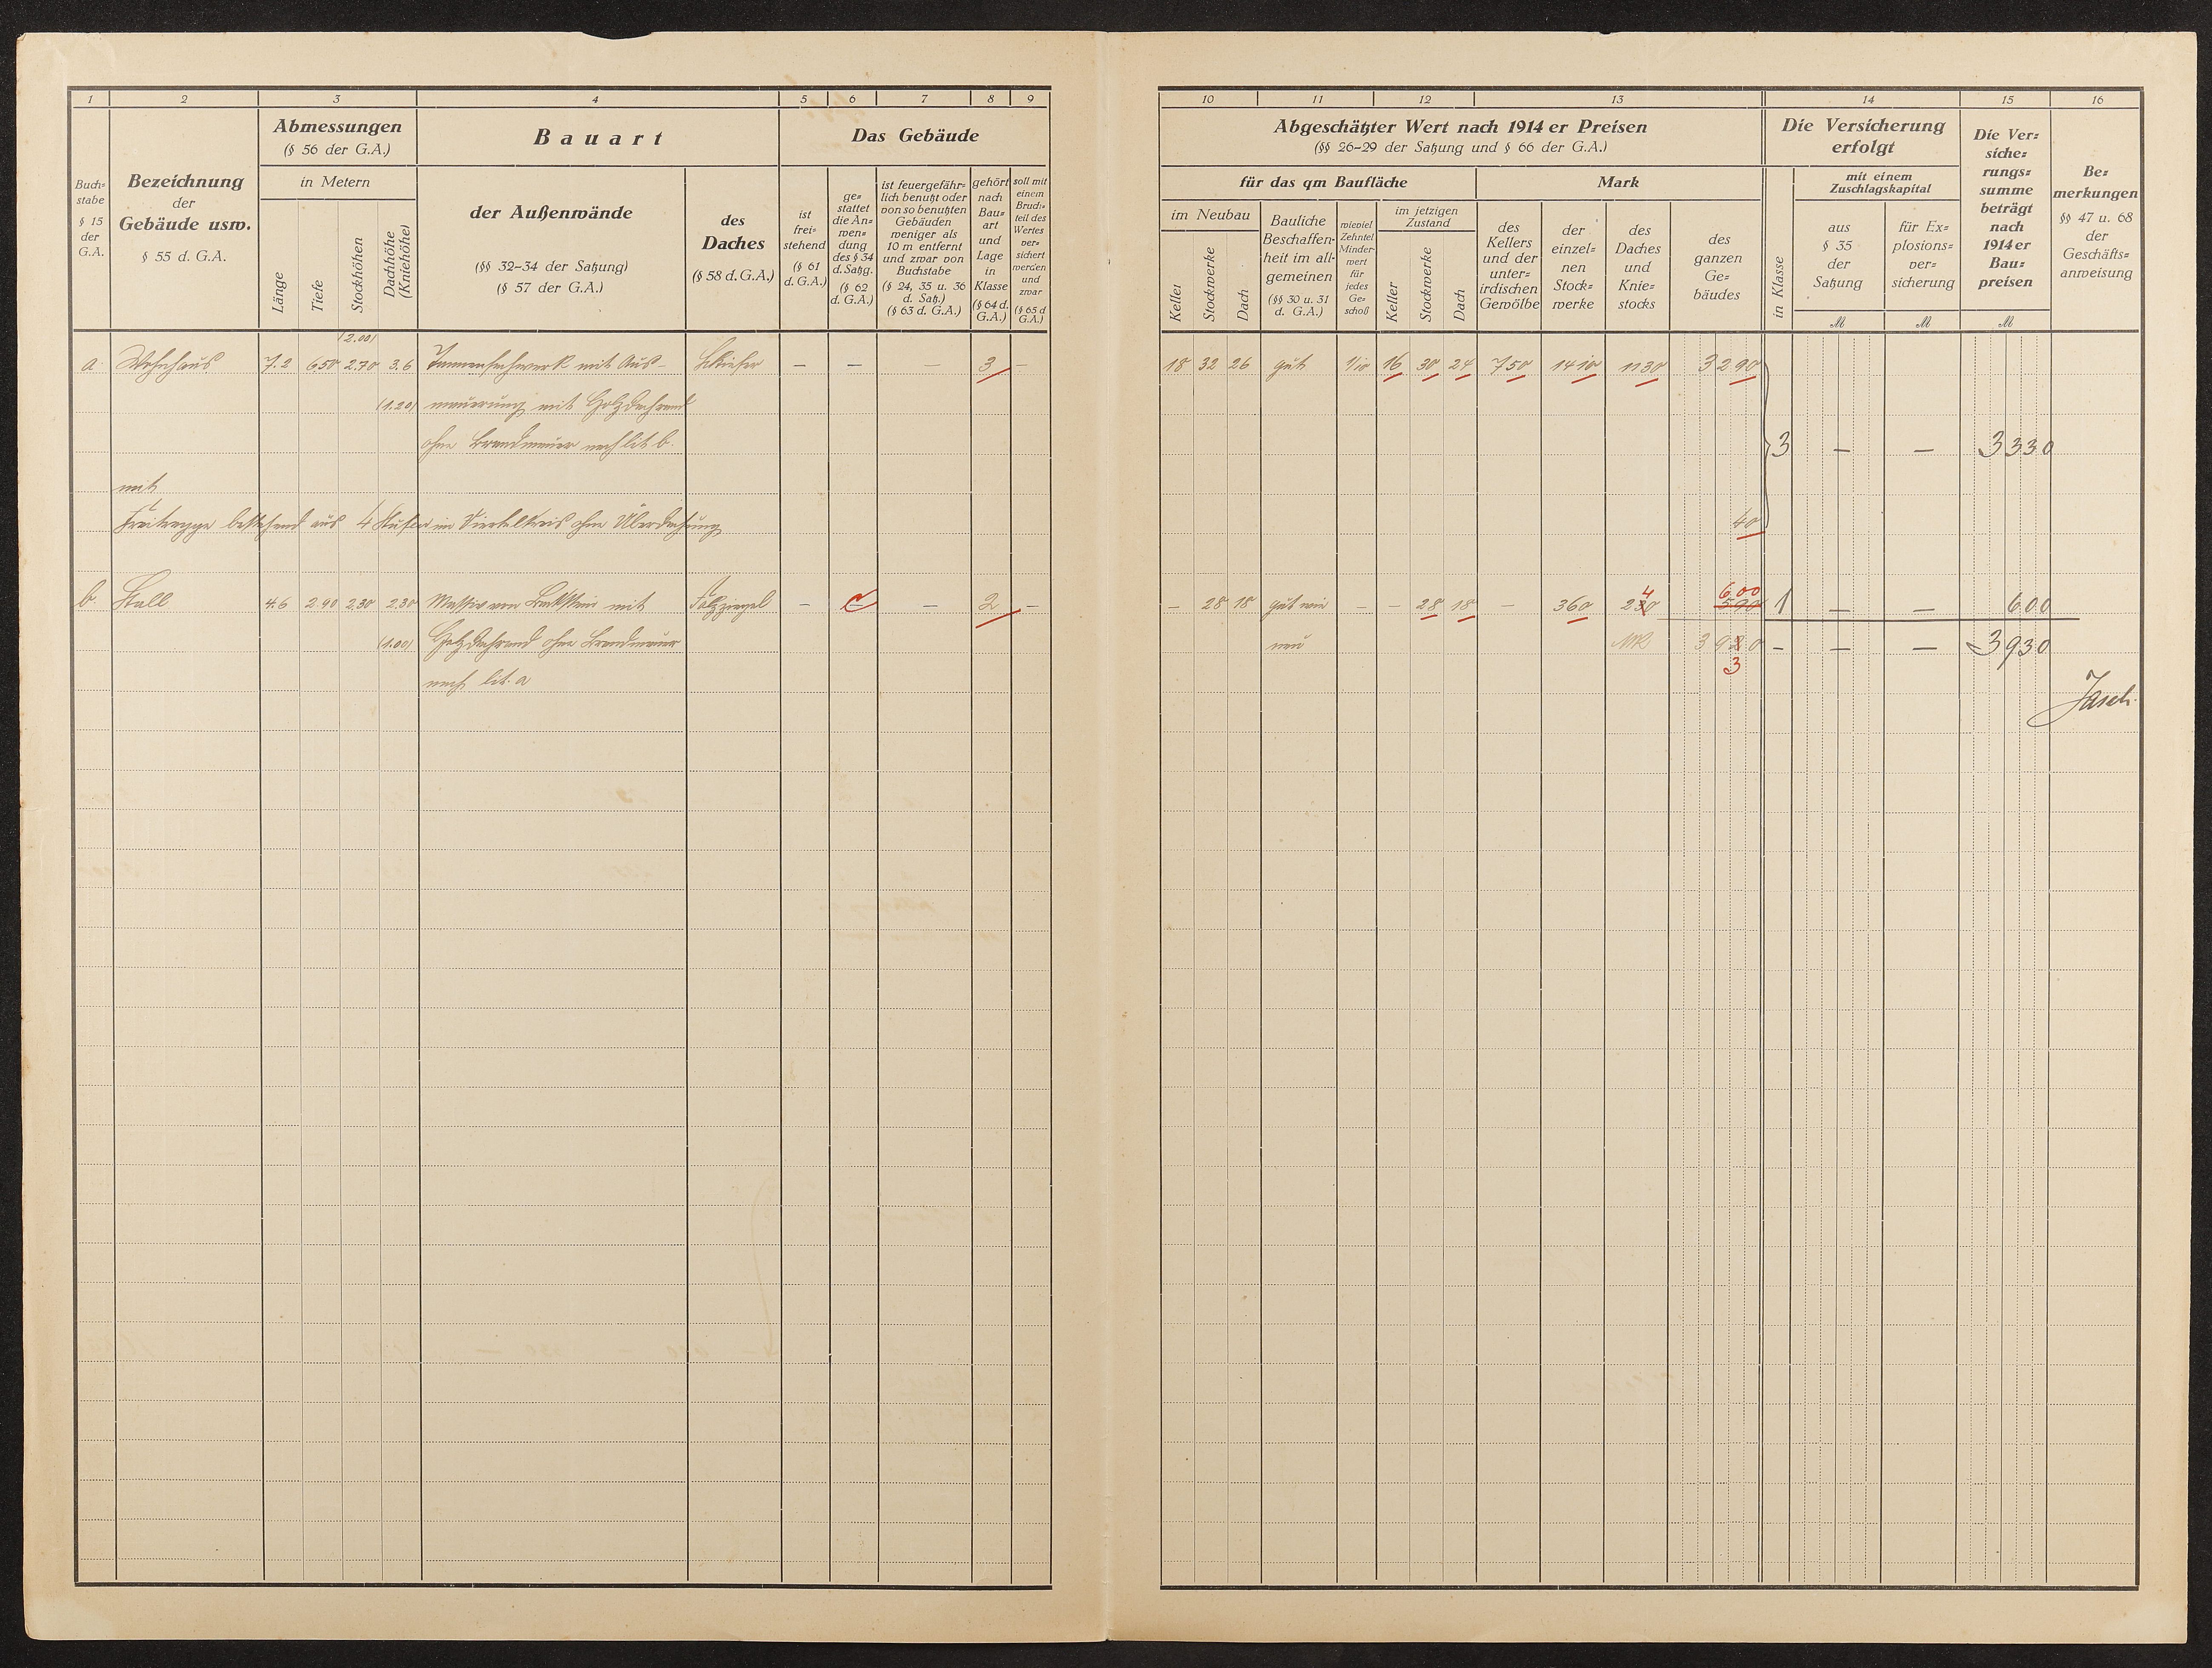 1 2 3 4 5 6 7 8 9
Buch=
stabe
§ 15
der
G.A.
Bezeichnung
der
Gebäude usw.
§ 55 d. G.A.
Abmessungen
(§ 56 der G.A.)
in Metern
Länge
Tiefe
Stockhöhen
Dachhöhe
(Kniehöhe)
Bauart
der Außenwände
(§§ 32–34 der Satzung)
(§ 57 der G.A.)
des
Daches
(§ 58 d. G.A.)
Das Gebäude
ist
frei=
stehend
(§ 61
d. G.A.)
ge=
stattet
die An=
wen=
dung
des § 34
d. Satzg.
(§ 62
d. G.A.)
ist feuergefähr=
lich benutzt oder
von so benutzten
Gebäuden
weniger als
10 m entfernt
und zwar von
Buchstabe
(§ 24, 35 u. 36
d. Satz.)
(§ 63 d. G.A.)
gehört
nach
Bau=
art
und
Lage
in
Klasse
(§ 64 d.
G.A.)
soll mit
einem
Bruch=
teil des
Wertes
ver=
sichert
werden
und
zwar
(§ 65 d
G.A.)
(2.00)
a. Wohnhaus 7.2 6.50 2.70 3.6 Tannenfachwerk mit Aus- Schiefer — — — 3 —
(1.20) mauerung mit Holzdachrand
ohne Brandmauer nach lit b.
mit
Freitreppe bestehend aus 4 Stufen im Viertelkreis ohne Überdachung
b. Stall 4.6 2.90 2.30 2.30 Massiv von Backstein mit Falzziegel — — — 2 —
(1.00) Holzdachrand ohne Brandmauer
nach lit. a
10 11 12 13 14 15 16
Abgeschätzter Wert nach 1914 er Preisen
(§§ 26–29 der Satzung und § 66 der G.A.)
für das qm Baufläche
im Neubau
Keller
Stockwerke
Dach
Bauliche
Beschaffen=
heit im all=
gemeinen
(§§ 30 u. 31
d. G.A.)
wieviel
Zehntel
Minder=
wert
für
jedes
Ge=
schoß
im jetzigen
Zustand
Keller
Stockwerke
Dach
Mark
des
Kellers
und der
unter=
irdischen
Gewölbe
der
einzel=
nen
Stock=
werke
des
Daches
und
Knie=
stocks
des
ganzen
Ge=
bäudes
Die Versicherung
erfolgt
in Klasse
mit einem
Zuschlagskapital
aus
§ 35
der
Satzung
für Ex=
plosions=
ver=
sicherung
Die Ver=
siche=
rungs=
summe
beträgt
nach
1914 er
Bau=
preisen
Be=
merkungen
§§ 47 u. 68
der
Geschäfts=
anweisung
M M M
18 32 26 gut 1/10 16 30 24 750 1410 1130 3290
3 — — 3330
40
4 600
— 28 18 gut wie — — 28 18 — 360 230 590 1 — — 600
neu MR 3920 — — — 3930
3
Jasch.